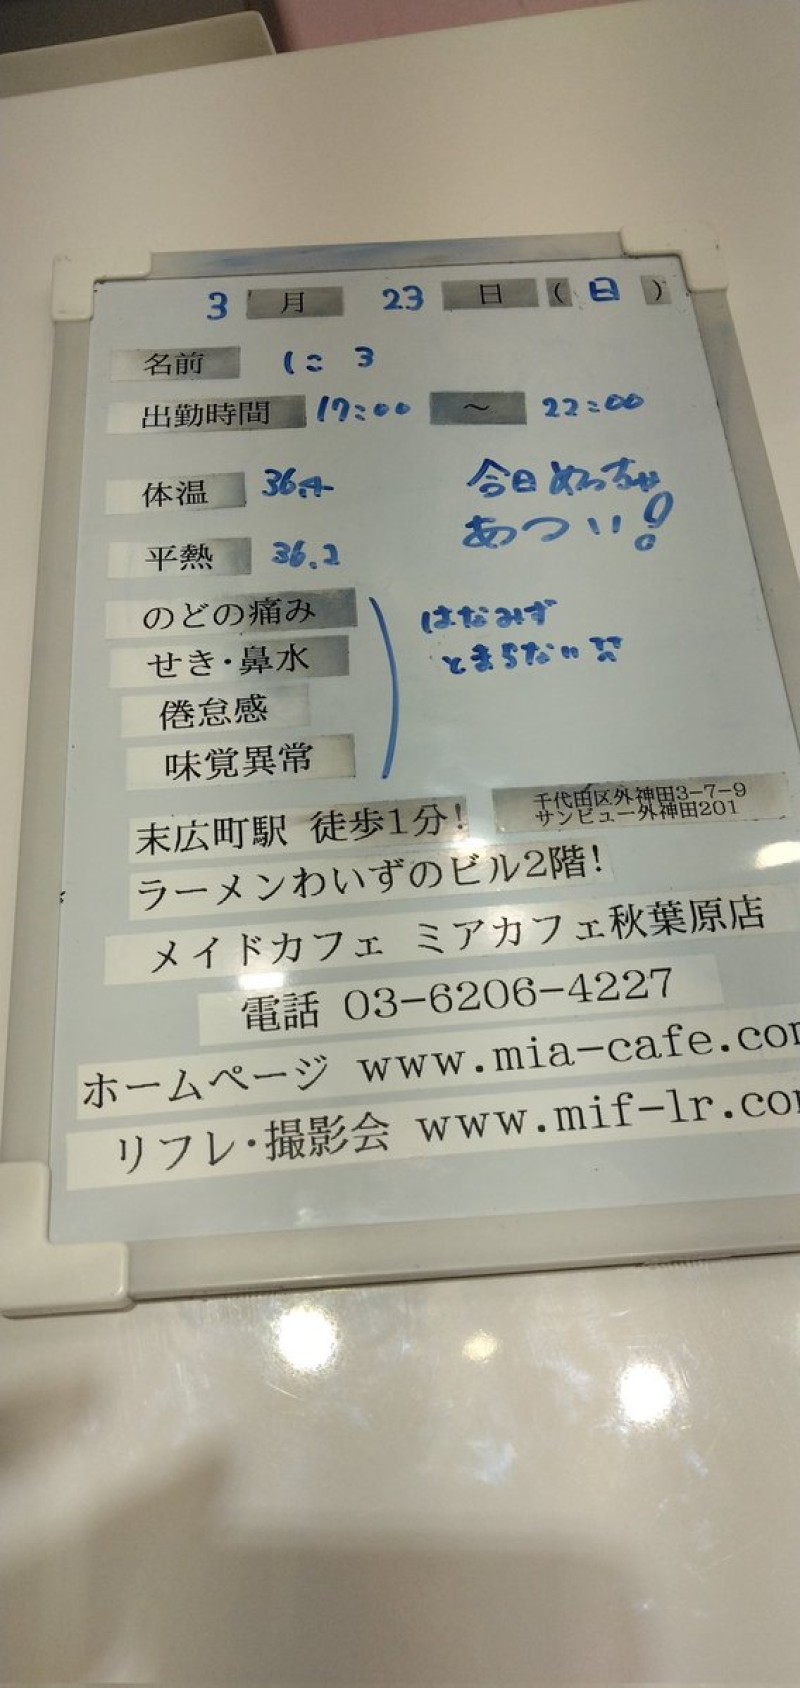 3 月 23 日 ( 日 )
名前 にこ 3
出勤時間 17:00 ～ 22:00
体温 36.4
今日めっちゃ
あつい!
平熱 36.2
のどの痛み
せき・鼻水
倦怠感
味覚異常
はなみず
とまらない
末広町駅 徒歩1分!
千代田区外神田3-7-9
サンビュー外神田201
ラーメンわいずのビル2階!
メイドカフェ ミアカフェ秋葉原店
電話 03-6206-4227
ホームページ www.mia-cafe.com
リフレ・撮影会 www.mif-lr.com